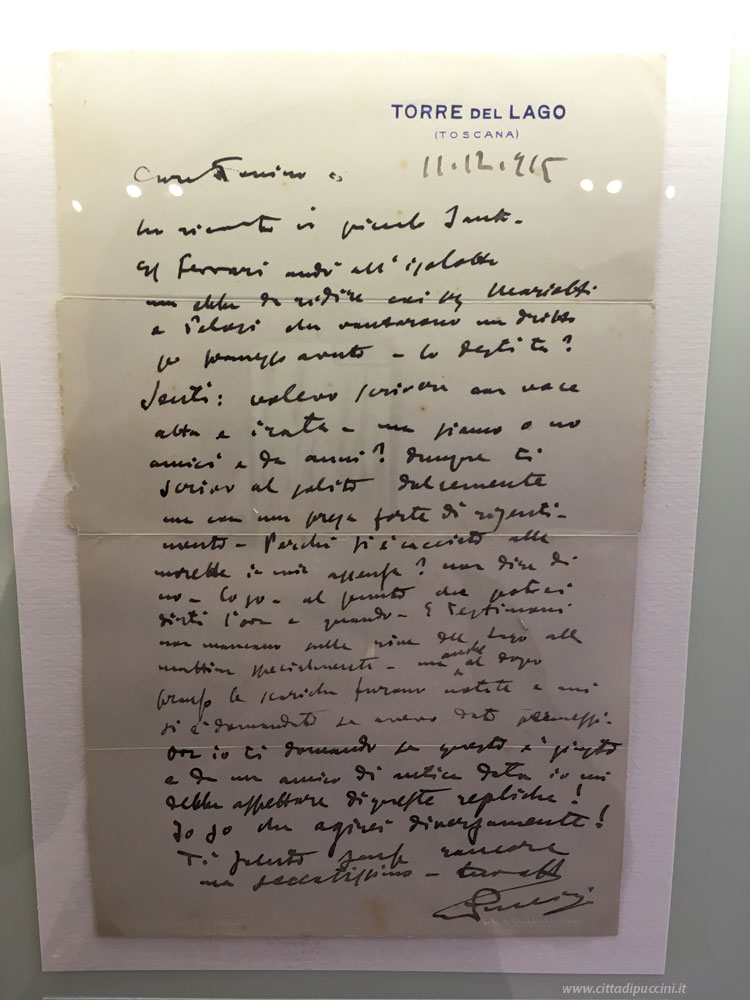 TORRE DEL LAGO
(TOSCANA)
11.12.915
Caro
ho ricevuto il piccolo
Ferrari andò all'isolotto
ma ebbe da ridire coi Mariotti
e che vantarono un diritto
per permesso avuto - Lo desti tu?
Senti: volevo scrivere con voce
alta e irata - ma siamo o no
amici e da anni? Dunque ti
scrivo al solito dolcemente
ma con una presa forte di risenti-
mento - Perchè si è cacciato alle
morelle in mia assenza? non dire di
no - Lo so - al punto che potrei
dirti l'ora e quando - E testimoni
non mancano sulle rive del Lago alla
mattina specialmente - ma anche al dopo
pranzo le scariche furono notate e mi
si è domandato se avevo dato permessi.
Ora io ti domando se questo è giusto
e da un amico di antica data io mi
debba aspettare di queste repliche!
Io so che agirei diversamente!
Ti saluto senza rancore
ma seccatissimo -
Puccini
www.cittadipuccini.it